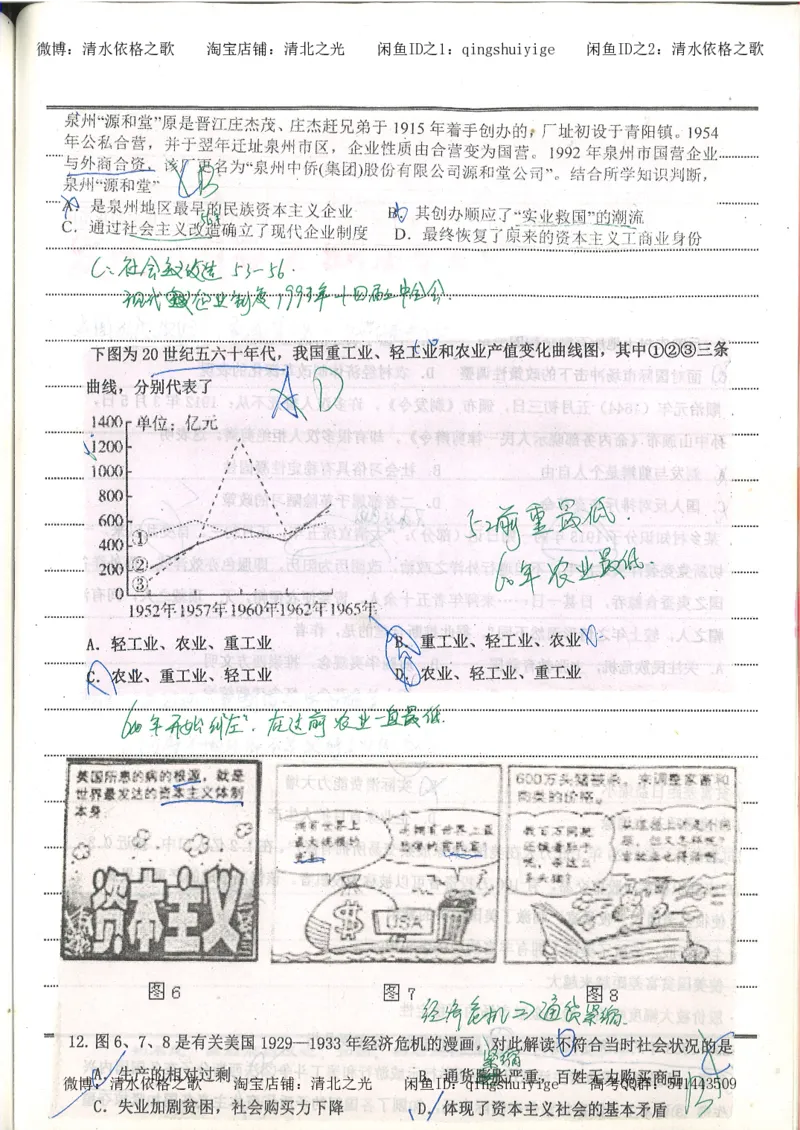 微博：清水依格之歌 淘宝店铺：清北之光 闲鱼ID之1：qingshuiyige 闲鱼ID之2：清水依格之歌
泉州“源和堂”原是晋江庄杰茂、庄杰赶兄弟于 1915 年着手创办的，厂址初设于青阳镇。1954
年公私合营，并于翌年迁址泉州市区，企业性质由合营变为国营。1992 年泉州市国营企业
与外商合资，该厂更名为“泉州中侨(集团)股份有限公司源和堂公司”。结合所学知识判断，
泉州“源和堂”
A．是泉州地区最早的民族资本主义企业 B．其创办顺应了“实业救国”的潮流
C．通过社会主义改造确立了现代企业制度 D．最终恢复了原来的资本主义工商业身份
C：社会主义改造 53-56.
现代企业制度 1993年十四届三中全会.
下图为 20 世纪五六十年代，我国重工业、轻工业和农业产值变化曲线图，其中①②③三条
曲线，分别代表了
A D
1400 单位：亿元
1200
1000
800
600
400
200
0
①
②
③
1952年 1957年 1960年 1962年 1965年
52前重最低.
60年农业最低.
A．轻工业、农业、重工业 B．重工业、轻工业、农业
C．农业、重工业、轻工业 D．农业、轻工业、重工业
美国所患的病的根源，就是
世界最发达的资本主义体制
本身
资本主义
拥有世界上
最大规模的
USA
600万头猪被杀，来调整家畜和
肉类的价格。
图6 图7 图8
经济危机⇒通货紧缩.
12. 图 6、7、8 是有关美国 1929—1933 年经济危机的漫画，对此解读不符合当时社会状况的是
紧缩
A．生产的相对过剩 B．通货膨胀严重，百姓无力购买商品
微博：清水依格之歌 淘宝店铺：清北之光 闲鱼ID：qingshuiyige 高考QQ群：941443509
C．失业加剧贫困，社会购买力下降 D．体现了资本主义社会的基本矛盾